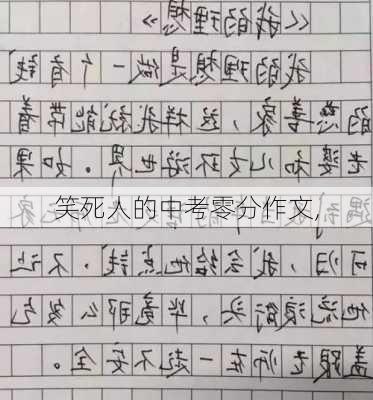 《我的理想》
我的理想是做一个有钱
的慈善家,这样我就能带着
老婆和儿女环游世界。如果
笑死人的中考零分作文,
遇 家
可归,我会给他点钱,不让
他流浪街头,毕竟那么多乞
盖跟老师在一起不安全。